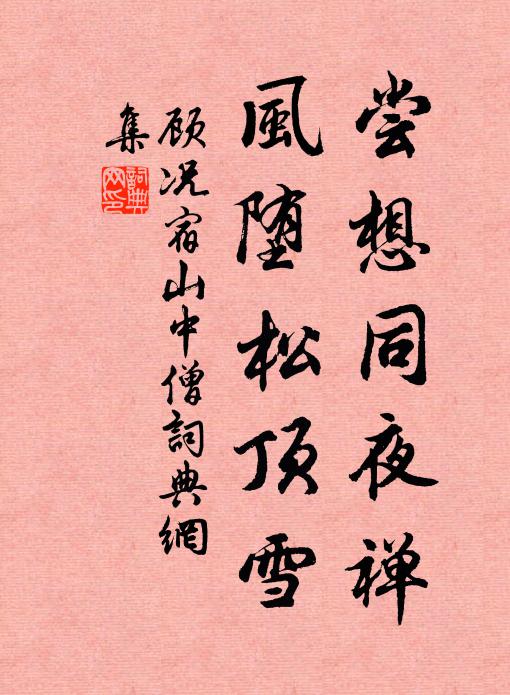 尝想同夜禅
風堕松顶雪
顾况宿山中僧詞典網
集
詞典网印